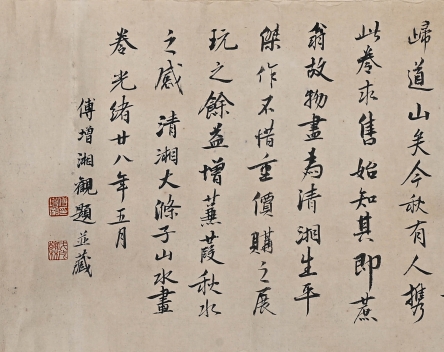 歸道山矣今秋有人攜
此卷求售始知其即蔗
翁故物盡為清湘生平
傑作不惜重價購之展
玩之餘益增蒹葭秋水
之感清湘大滌子山水畫
卷光緒廿八年五月
傅增湘觀題並藏